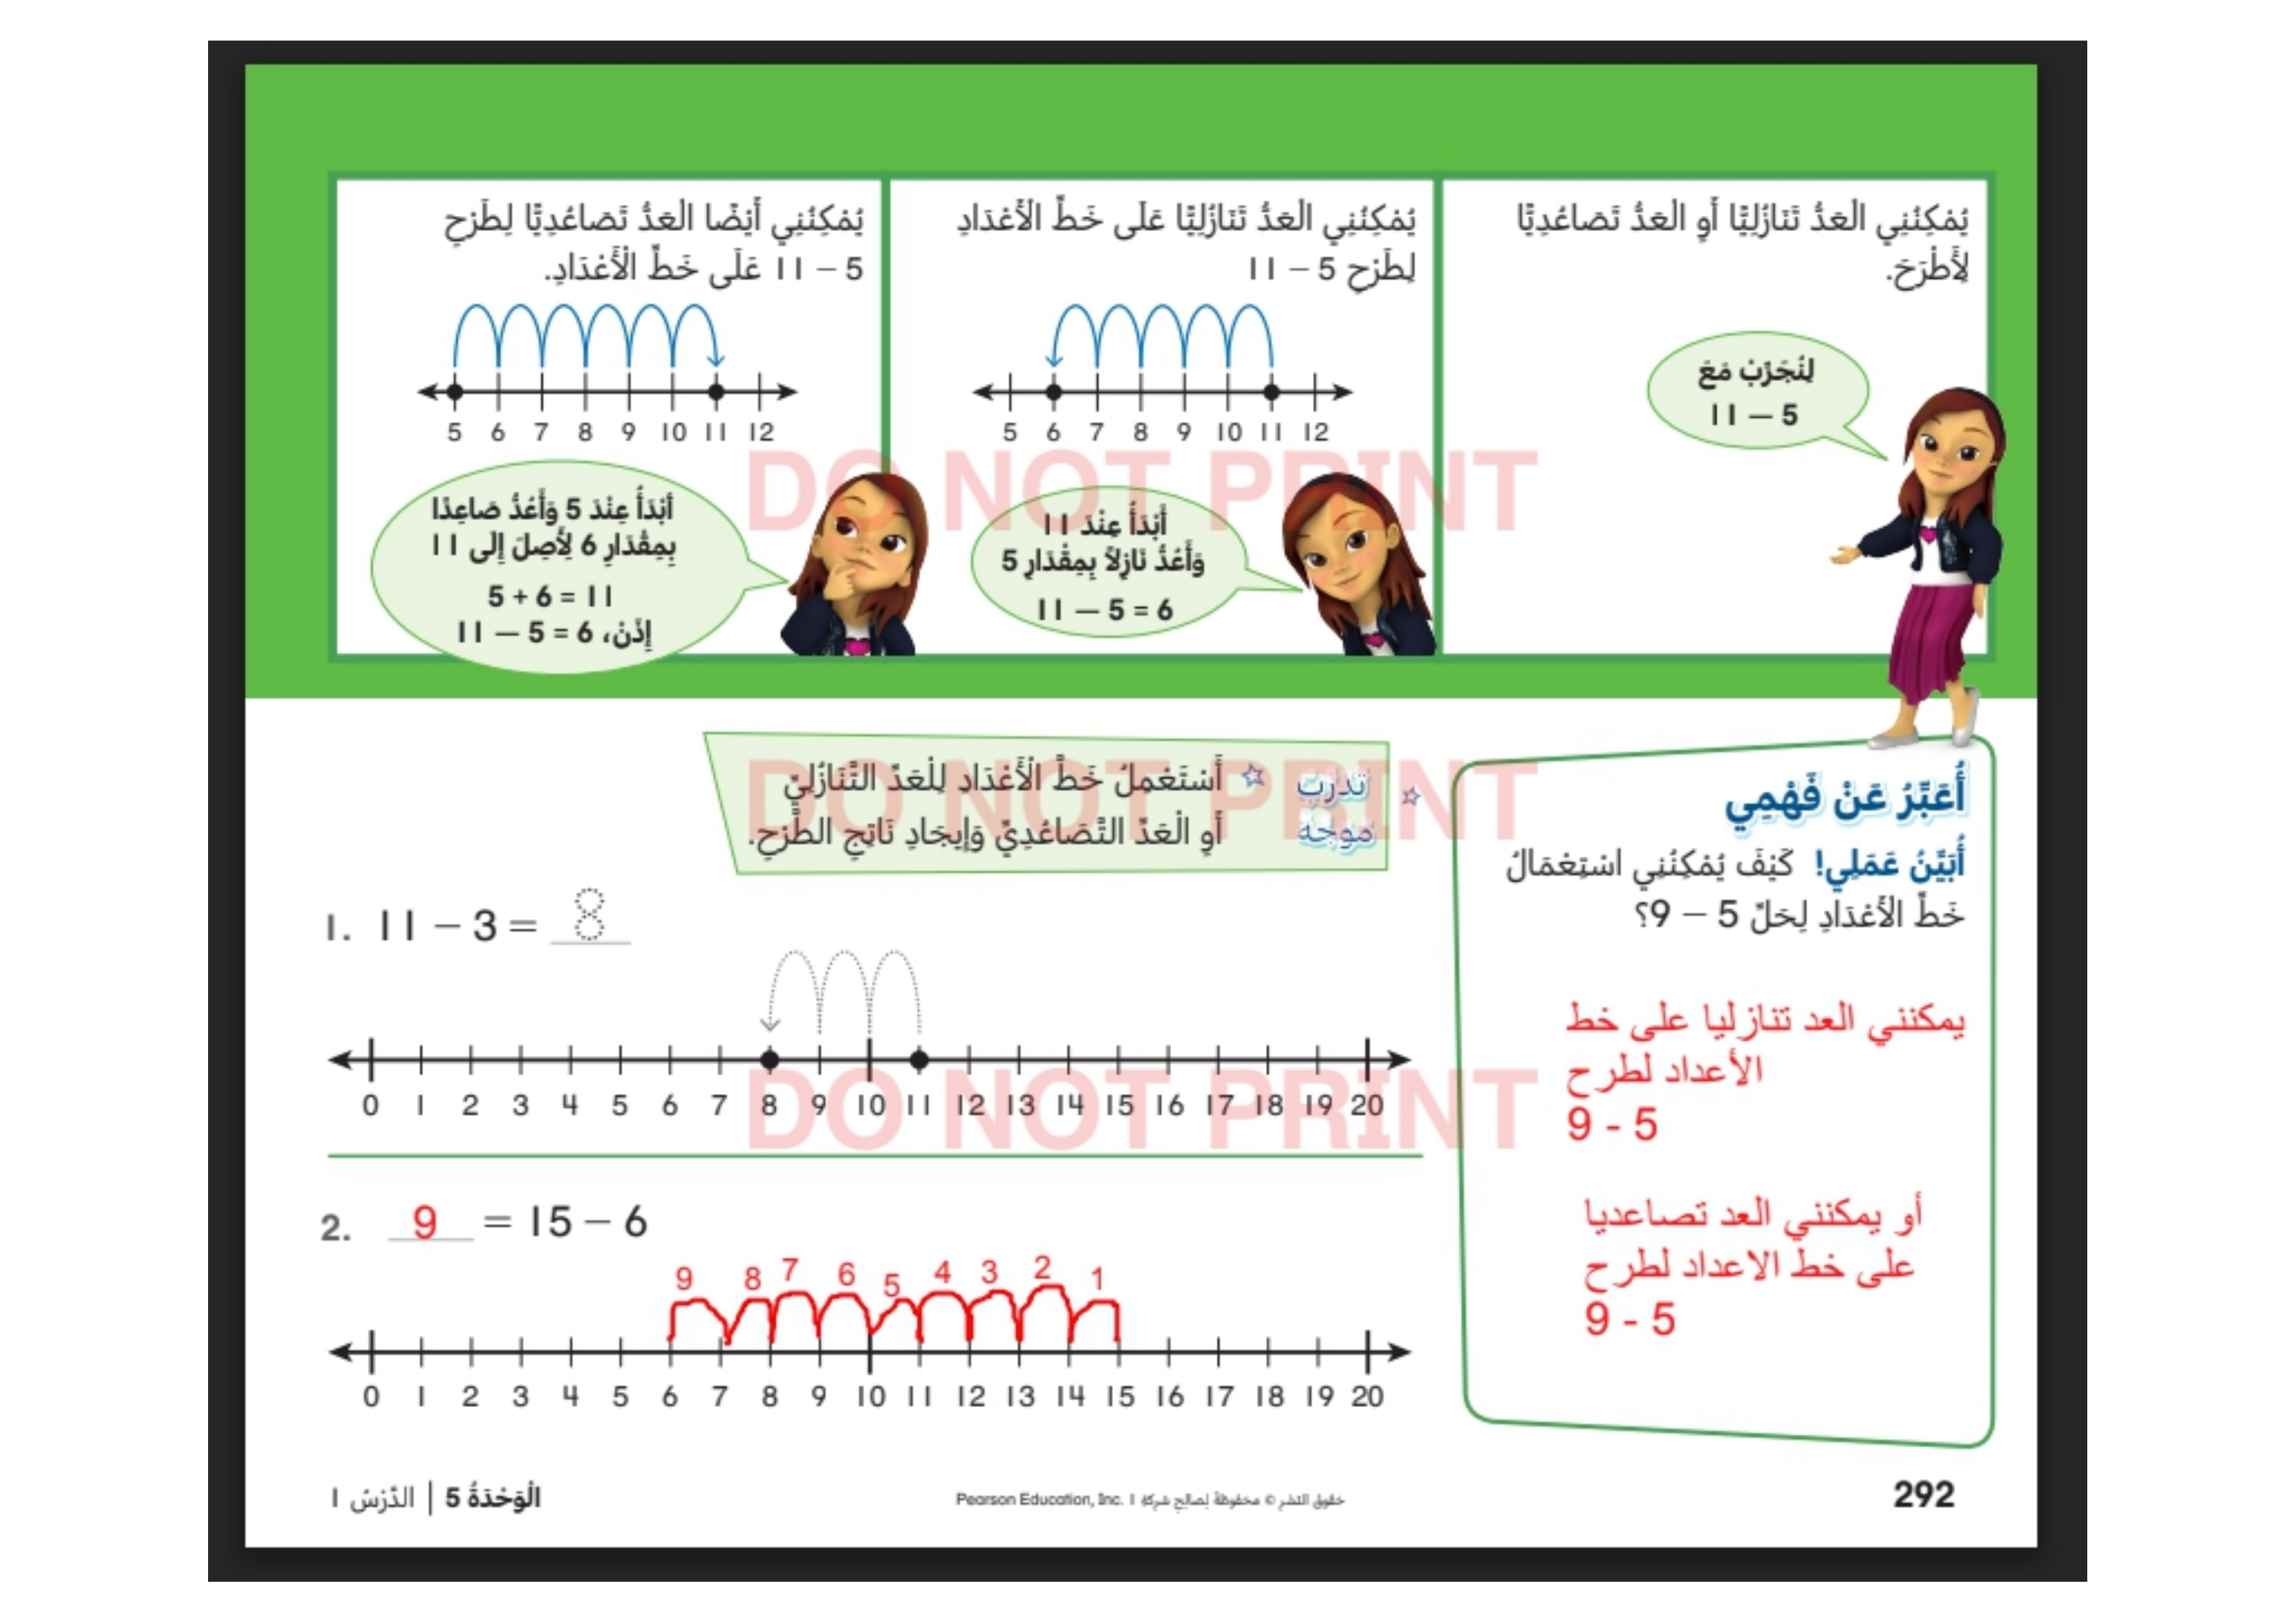 يُمْكِنُنِي الْعَدُّ تَنَازُلِيًّا أَوِ الْعَدُّ تَصَاعُدِيًّا
لِأَطْرَحَ.
لِنُجَرِّبْ مَعَ
11 – 5
يُمْكِنُنِي الْعَدُّ تَنَازُلِيًّا عَلَى خَطِّ الْأَعْدَادِ
لِطَرْحِ 5 – 11
5 6 7 8 9 10 11 12
أَبْدَأُ عِنْدَ 11
وَأَعُدُّ نَازِلاً بِمِقْدَارِ 5
11 – 5 = 6
يُمْكِنُنِي أَيْضًا الْعَدُّ تَصَاعُدِيًّا لِطَرْحِ
5 – 11 عَلَى خَطِّ الْأَعْدَادِ.
5 6 7 8 9 10 11 12
أَبْدَأُ عِنْدَ 5 وَأَعُدُّ صَاعِدًا
بِمِقْدَارِ 6 لِأَصِلَ إِلَى 11
5 + 6 = 11
إِذَنْ، 6 = 5 – 11
DO NOT PRINT
أُعَبِّرُ عَنْ فَهْمِي
أُبَيِّنُ عَمَلِي! كَيْفَ يُمْكِنُنِي اسْتِعْمَالُ
خَطِّ الْأَعْدَادِ لِحَلِّ 5 – 9؟
يمكنني العد تنازليا على خط
الأعداد لطرح
9 - 5
أو يمكنني العد تصاعديا
على خط الاعداد لطرح
9 - 5
☆ تدرب ☆ أَسْتَعْمِلُ خَطَّ الْأَعْدَادِ لِلْعَدِّ التَّنَازُلِيِّ
موجه أَوِ الْعَدِّ التَّصَاعُدِيِّ وَإِيجَادِ نَاتِجِ الطَّرْحِ.
DO NOT PRINT
1. 11 – 3 = 8
0 1 2 3 4 5 6 7 8 9 10 11 12 13 14 15 16 17 18 19 20
DO NOT PRINT
2. 9 = 15 – 6
9 8 7 6 5 4 3 2 1
0 1 2 3 4 5 6 7 8 9 10 11 12 13 14 15 16 17 18 19 20
292
حقوق النشر © محفوظة لصالح شركة Pearson Education, Inc. 1
الْوَحْدَةُ 5 | الدَّرْسُ 1